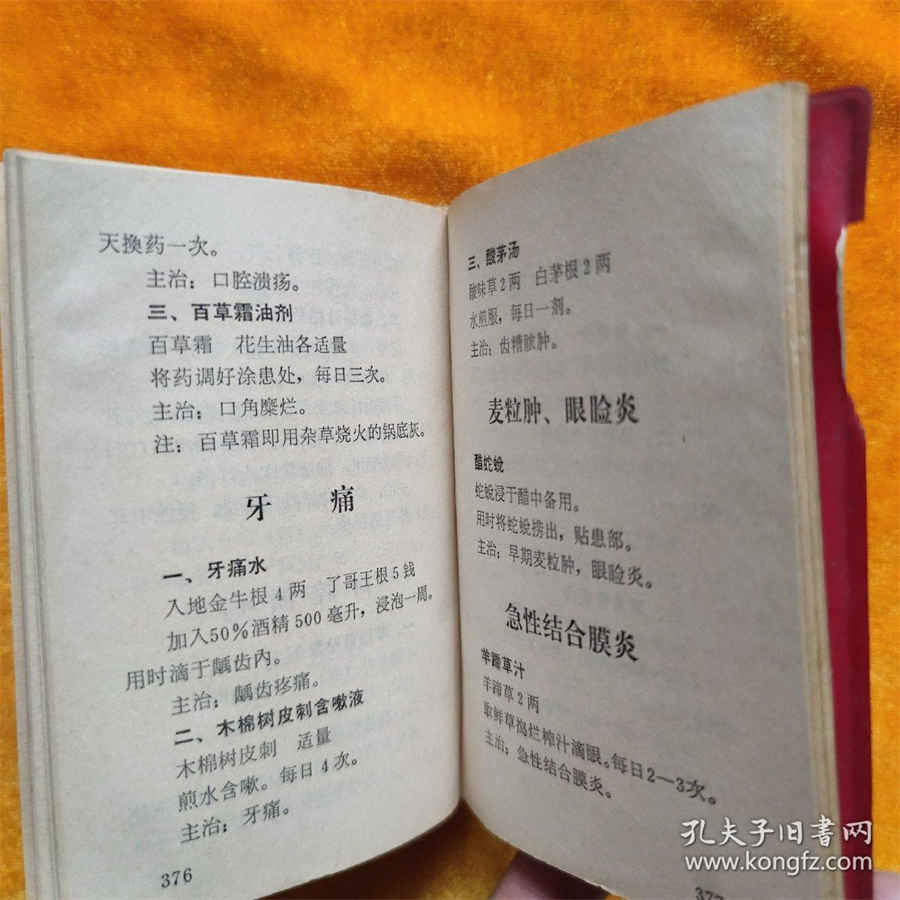 天換药一次。
主治：口腔溃疡。
三、百草霜油剂
百草霜 花生油各适量
将药调好涂患处，每日三次。
主治：口角糜烂。
注：百草霜即用杂草烧火的锅底灰。
牙 痛
一、牙痛水
入地金牛根4两 了哥王根5钱
加入50%酒精500毫升，浸泡一周。
用时滴于龋齿內。
主治：龋齿疼痛。
二、木棉树皮刺含嗽液
木棉树皮刺 适量
煎水含嗽。每日4次。
主治：牙痛。
376
三、酸茅汤
酸味草2两 白茅根2两
水煎服，每日一剂。
主治：齿槽脓肿。
麦粒肿、眼睑炎
醋蛇蛻
蛇蛻浸于醋中备用。
用时将蛇蛻捞出，贴患部。
主治：早期麦粒肿，眼睑炎。
急性结合膜炎
羊蹄草汁
羊蹄草2两
取鲜草捣烂榨汁滴眼。每日2—3次。
主治：急性结合膜炎。
377
孔夫子旧書网
www.kongfz.com